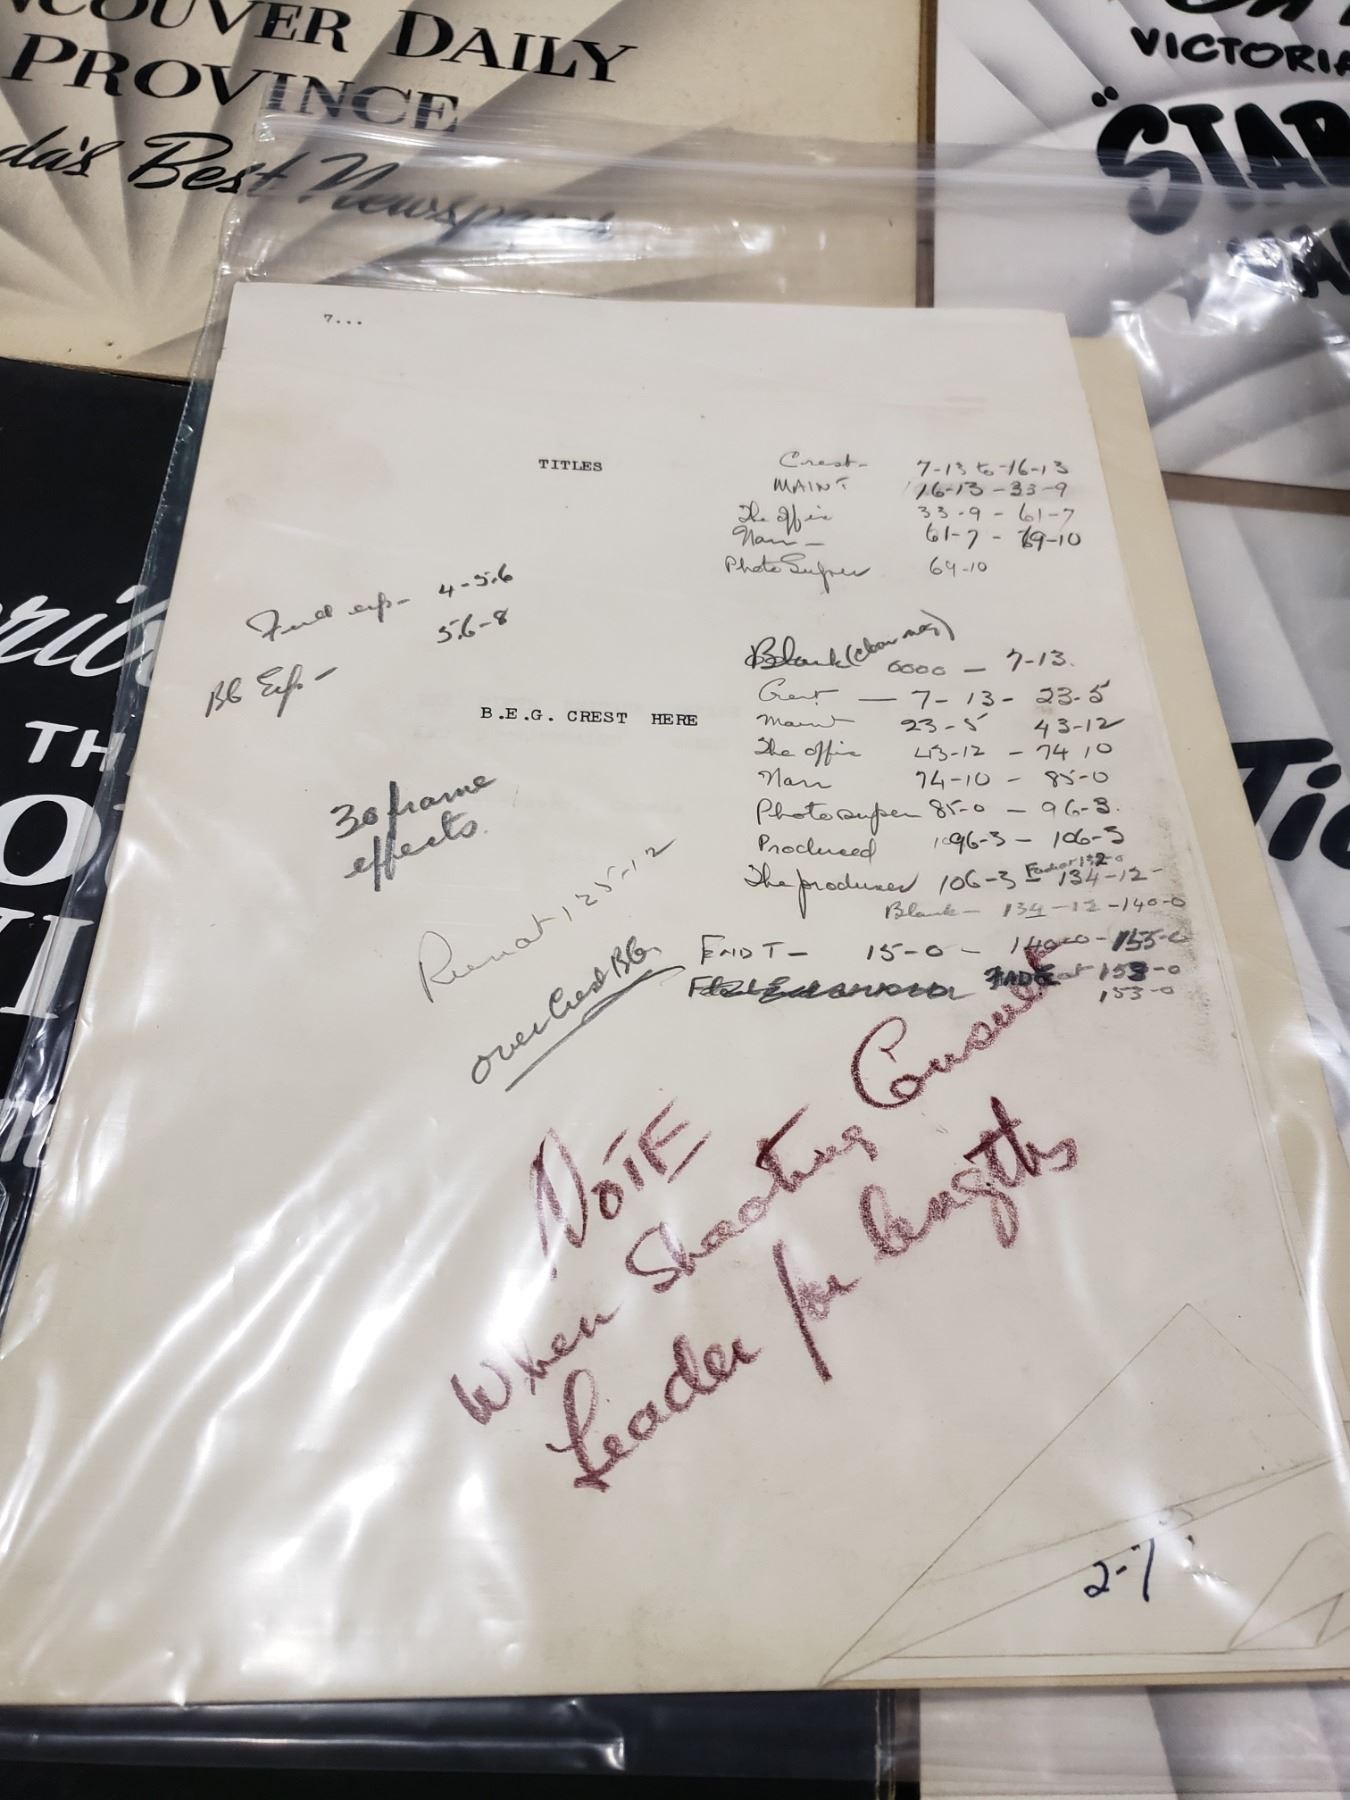 VANCOUVER DAILY
PROVINCE
Best Newspaper
VICTORIA
"STAR
7...
TITLES
Crest- 7-13 to 16-13
MAINT 16-13 - 33-9
The offic 33-9 - 61-7
Narr - 61-7 - 69-10
Photo Super 69-10
4-5.6
5.6-8
BG Exp -
Blank 0000 - 7-13.
B.E.G. CREST HERE
Crest - 7-13 - 23-5
Maint 23-5 43-12
The offic 43-12 - 74 10
Narr 74-10 - 85-0
Photo super 85-0 - 96-3.
Produced 96-3 - 106-3
The producer 106-3 - 134-12-
Blank - 134-12-140-0
END T - 15-0 - 140-0 - 155-0
at 153-0
153-0
30 frame
effects.
Run at 125-12
over Crest BG.
NOTE
When Shooting Consult
Leader for lengths
2-7
TH